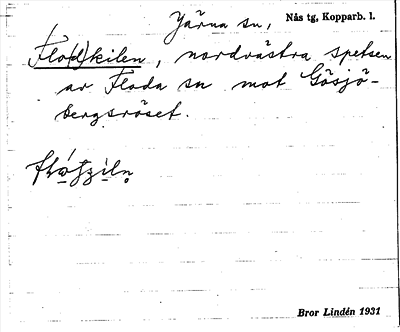 Järna sn, Nås tg, Kopparb. l.
Flo(d)kilen, nordvästra spetsen
av Floda sn mot Gösjö-
bergsröset.
Bror Lindén 1931